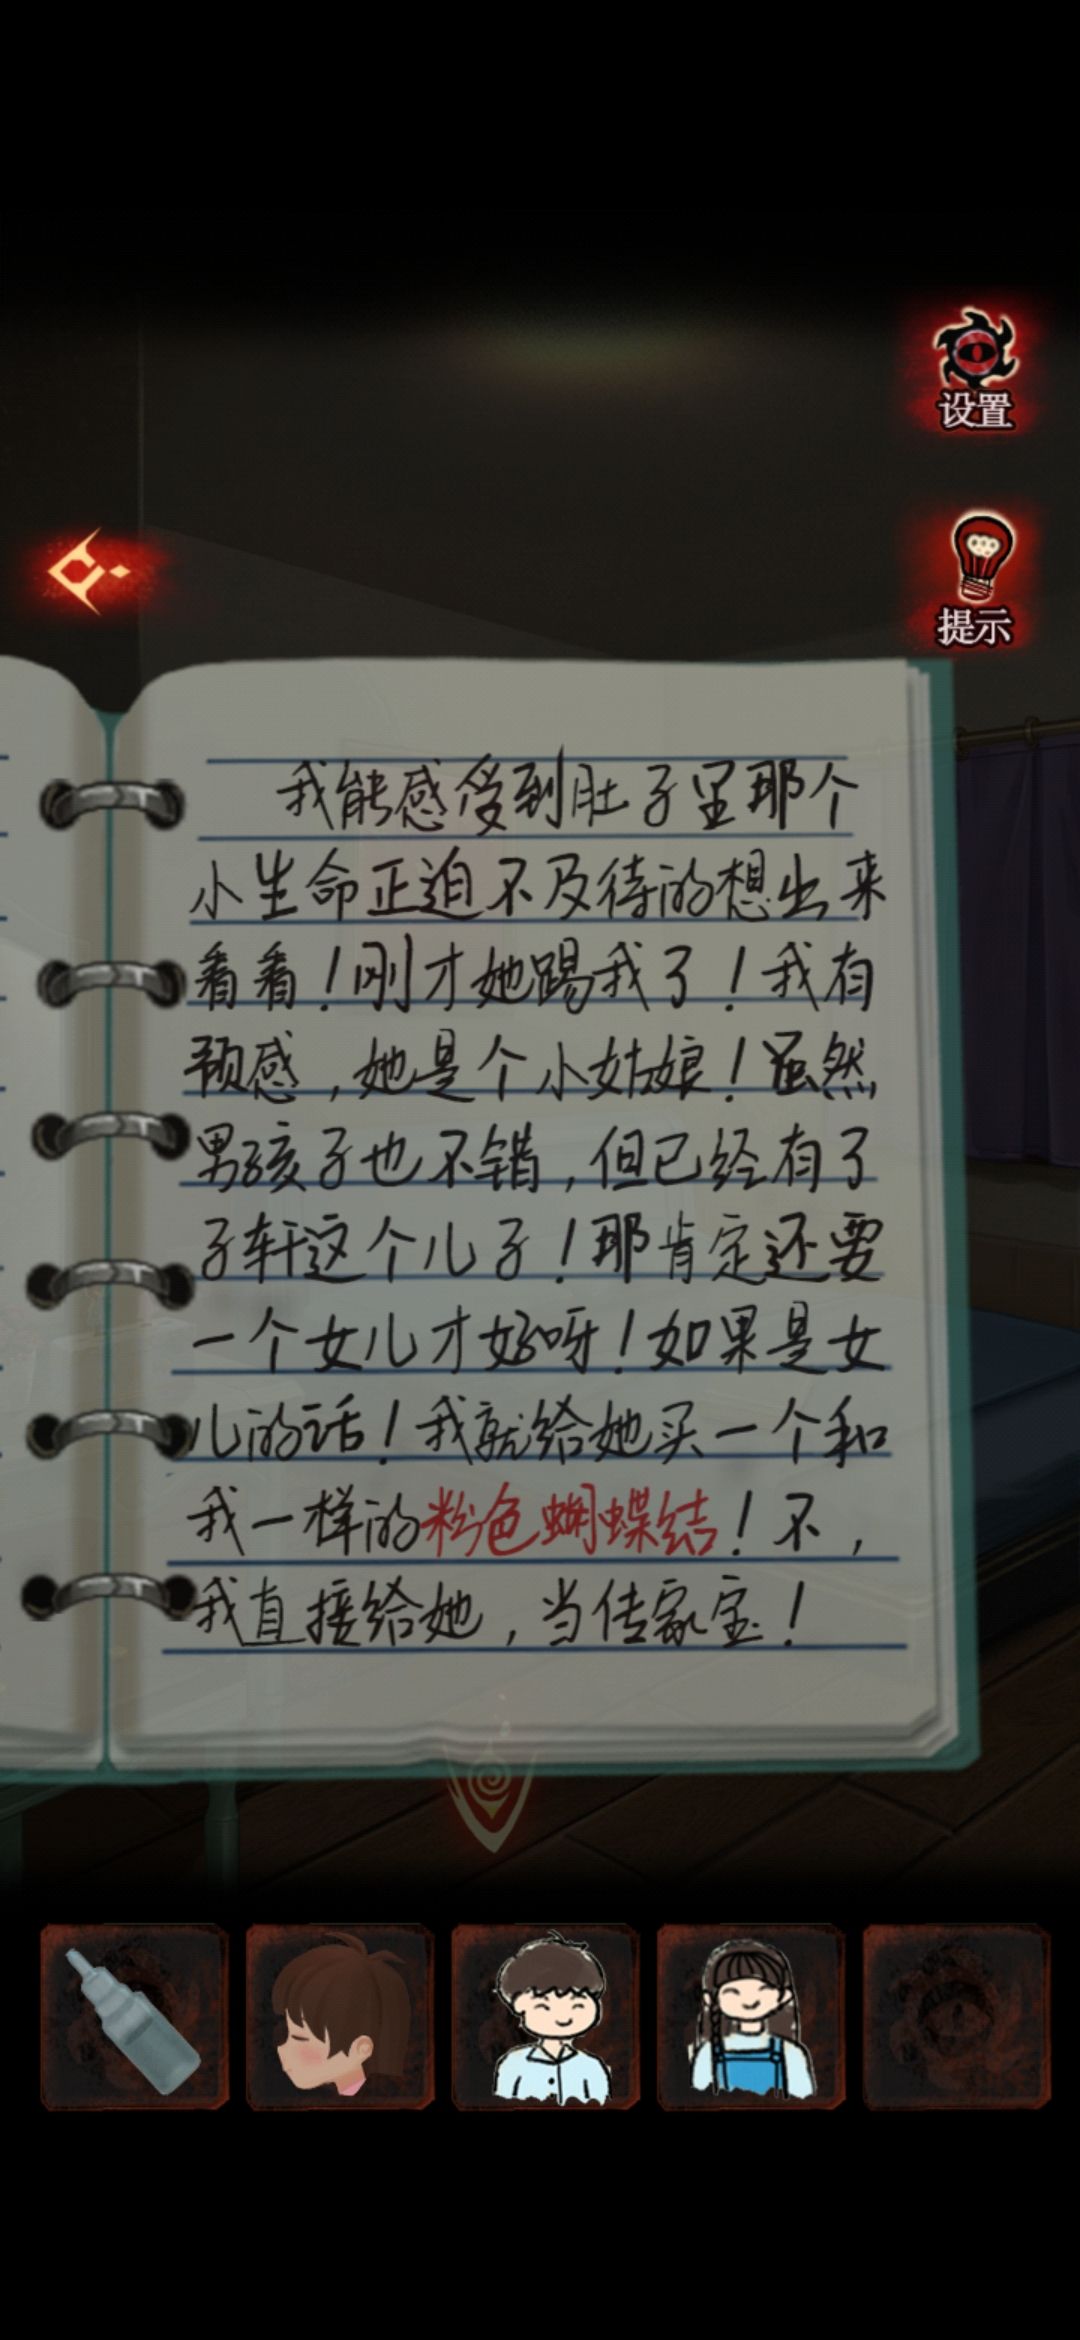 设置
提示
我能感受到肚子里那个
小生命正迫不及待的想出来
看看！刚才她踢我了！我有
预感，她是个小姑娘！虽然
男孩子也不错，但已经有了
子轩这个儿子！那肯定还要
一个女儿才好呀！如果是女
儿的话！我就给她买一个和
我一样的粉色蝴蝶结！不，
我直接给她，当传家宝！